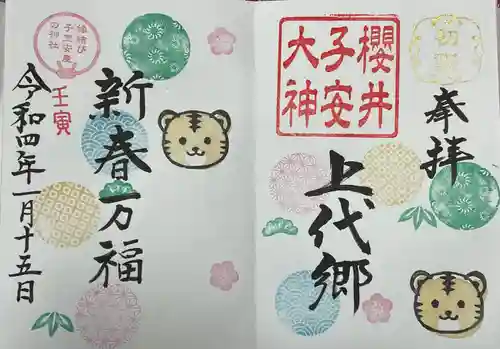 初詣
奉拝
櫻井
子安
大神
上代郷
新春万福
壬寅
縁結び
子宝安産
の神社
令和四年一月十五日